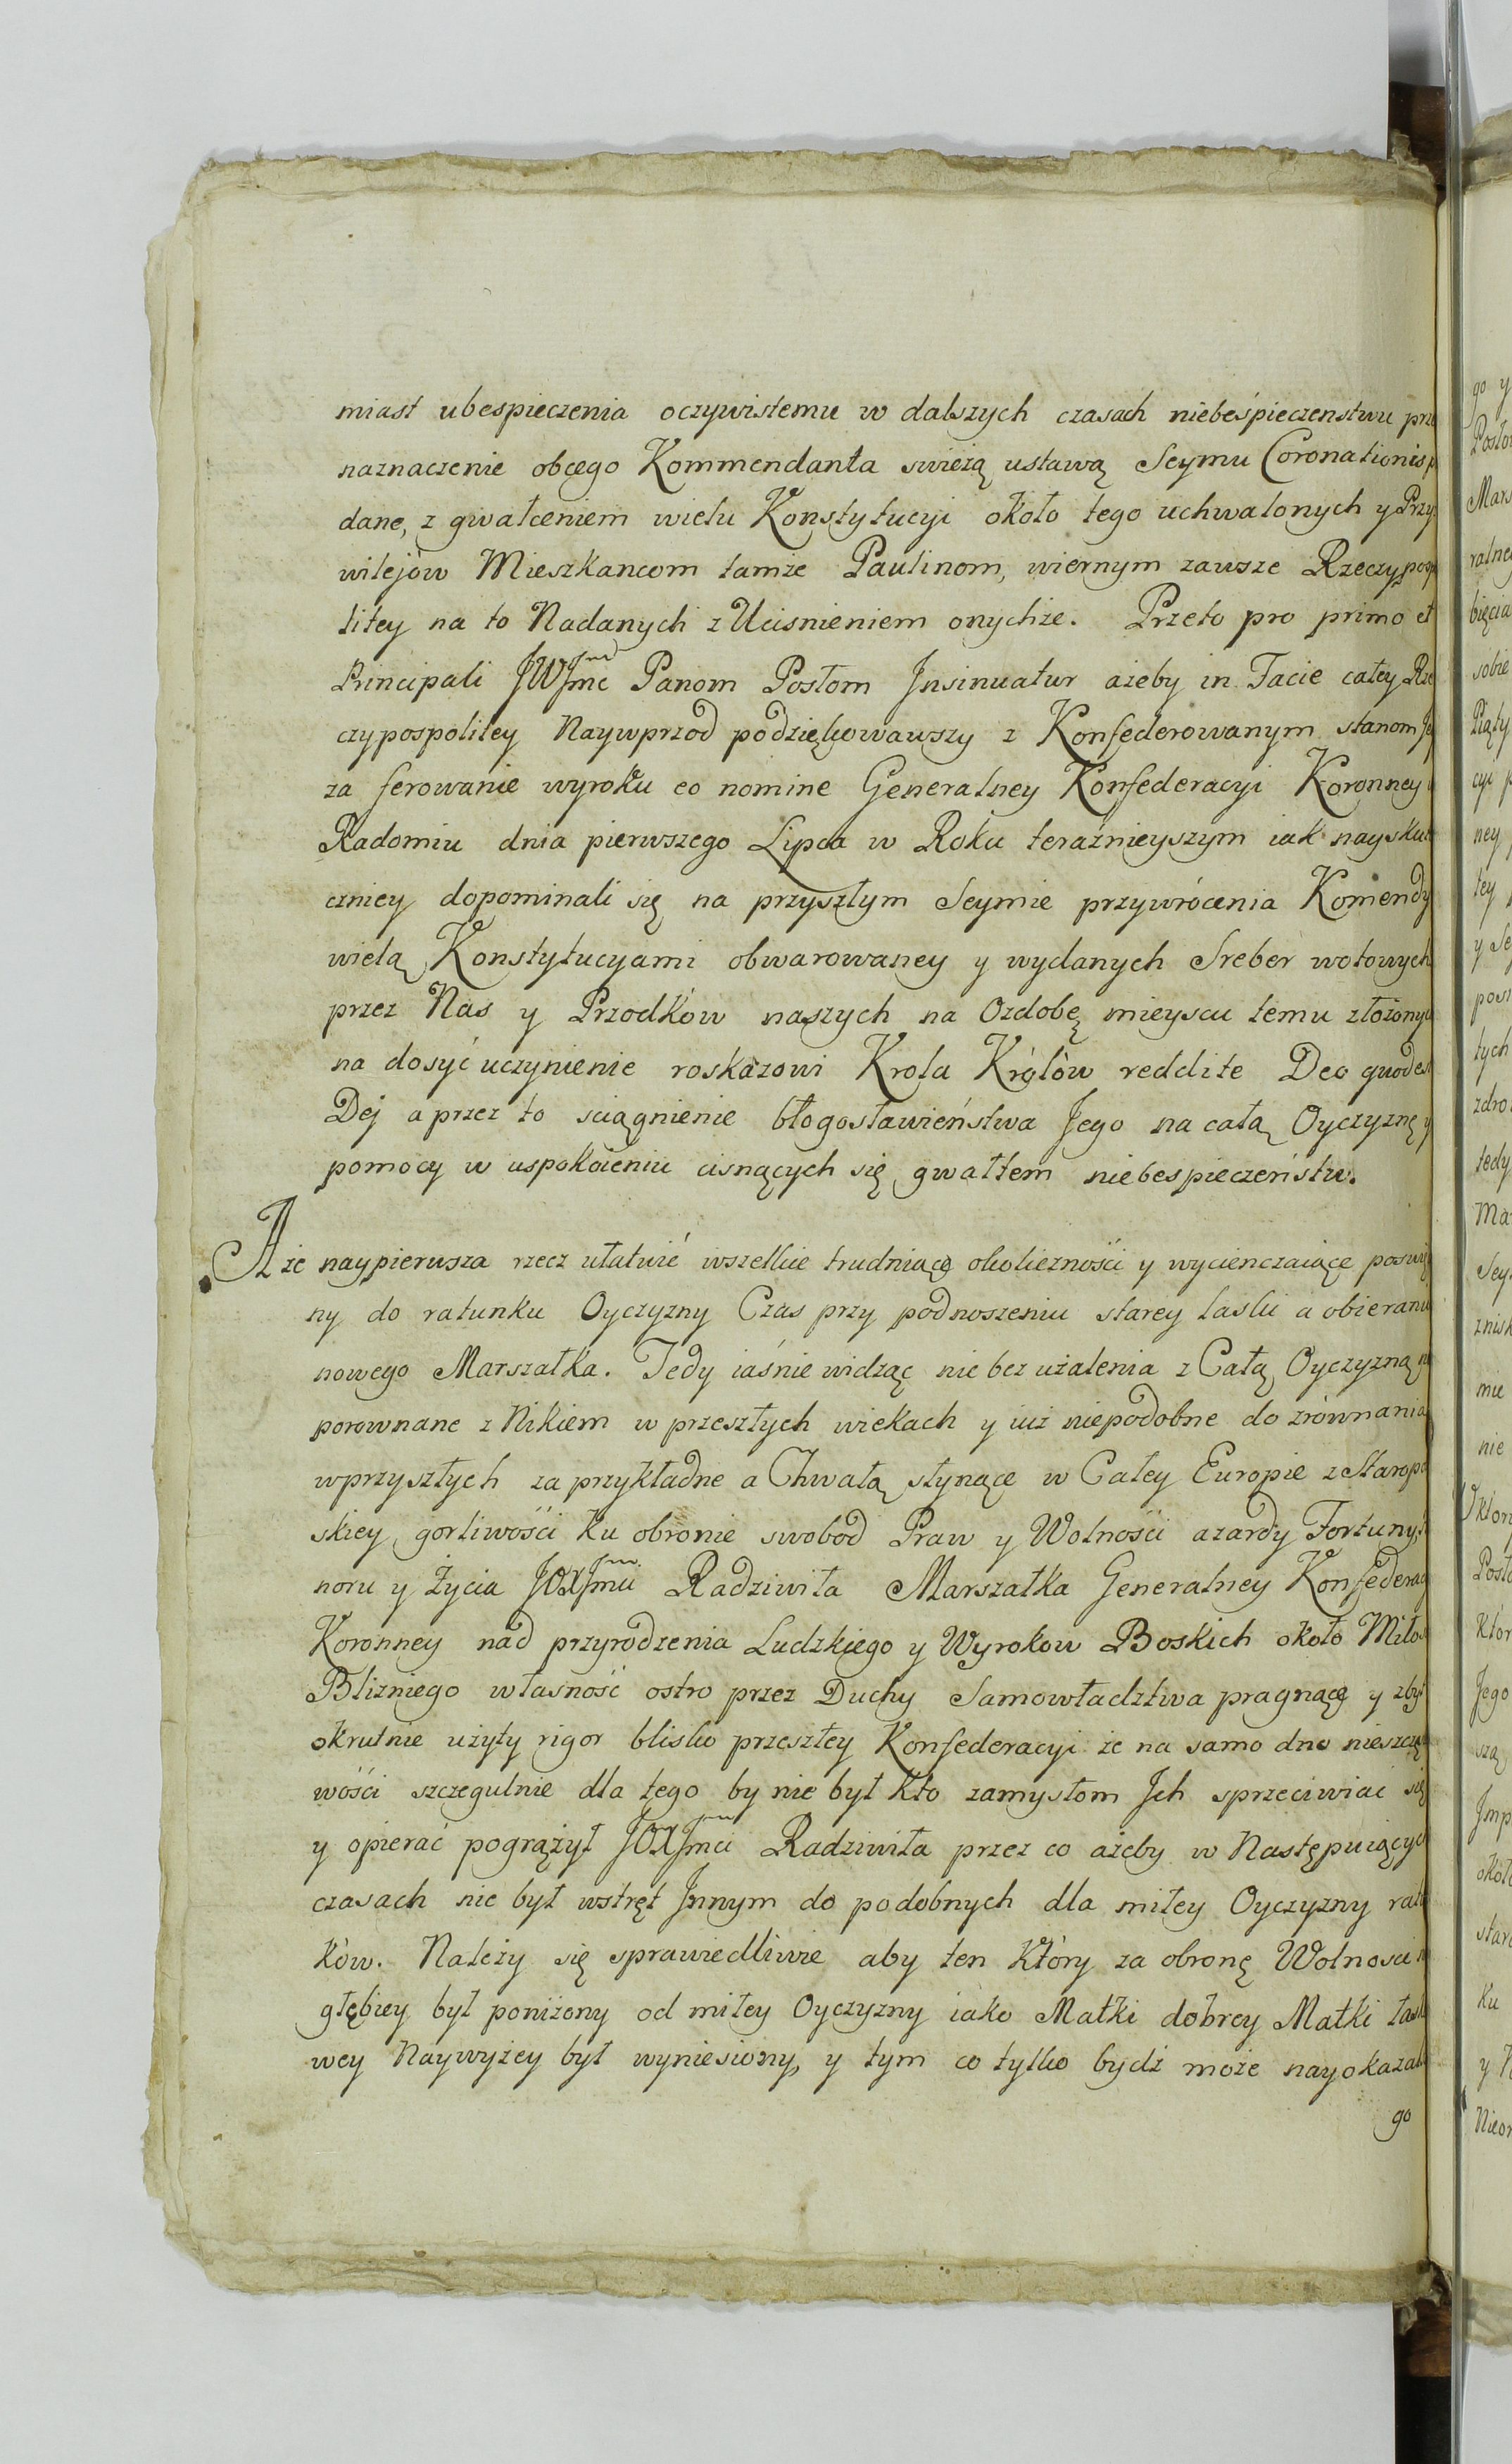 miast ubespieczenia oczywistemu w dalszych czasach niebeśpieczenstwu prze
naznaczenie obcego Kommendanta swieżą ustawą Seymu Coronationis p
dane, z gwałceniem wielu Konstytucyi około tego uchwalonych y Przy
wilejow Mieszkancom tamże Paulinom, wiernym zawsze Rzeczyposp
litey na to Nadanych z Ucisnieniem onychże. Przeto pro primo et
Principali JWJmć Panom Posłom Jnsinuatur ażeby in Facie całey Rze
czypospolitey Naywprzod podziękowawszy z Konfederowanym stanom Je
za ferowanie wyroku eo nomine Generalney Konfederacyi Koronney
Radomiu dnia pierwszego Lipca w Roku teraźnieyszym iak nayskut
czniey dopominali się na przyszłym Seymie przywrócenia Komendy
wielą Konstytucyami obwarowaney y wydanych Sreber wotowych
przez Nas y Przodków naszych na Ozdobę mieyscu temu złożonyc
na dosyć uczynienie roskazowi Krola Królów reddite Deo quod est
Dej a przez to sciągnienie błogosławieństwa Jego na całą Oyczyznę y
pomocy w uspokoieniu cisnących się gwałtem niebespieczeństw.
A że naypierwsza rzecz ułatwić wszelkie trudniące okoliczności y wycienczaiące powin
ny do ratunku Oyczyzny Czas przy podnoszeniu starey laski a obieraniu
nowego Marszałka. Tedy iaśnie widząc nie bez użalenia z Całą Oyczyzną
porownane z Nikiem w przeszłych wiekach y iuż niepodobne do zrównania
wprzyszłych za przykładne a Chwałą słynące w Całey Europie z Staropo
skiey gorliwości ku obronie swobod Praw y Wolności azardy Fortuny,
noru y Życia JOXJmci Radziwiła Marszałka Generalney Konfederac
Koronney nad przyrodzenia Ludzkiego y Wyrokow Boskich około Miłos
Blizniego własność ostro przez Duchy Samowładztwa pragnącę y zbyt
okrutnie użyty rigor blisko przeszłey Konfederacyi że na samo dno nieszczę
wości szczegulnie dla tego by nie był kto zamysłom Jch sprzeciwiać się
y opierać pogrążył JOXJmci Radziwiła przez co ażeby w Następuiącyc
czasach nie był wstręt Jnnym do podobnych dla miłey Oyczyzny ratu
ków. Należy się sprawiedliwie aby ten który za obronę Wolnosci
głębiey był poniżony od miłey Oyczyzny iako Matki dobrey Matki łask
wey Naywyżey był wyniesiony, y tym co tylko bydź może nayokazal
go